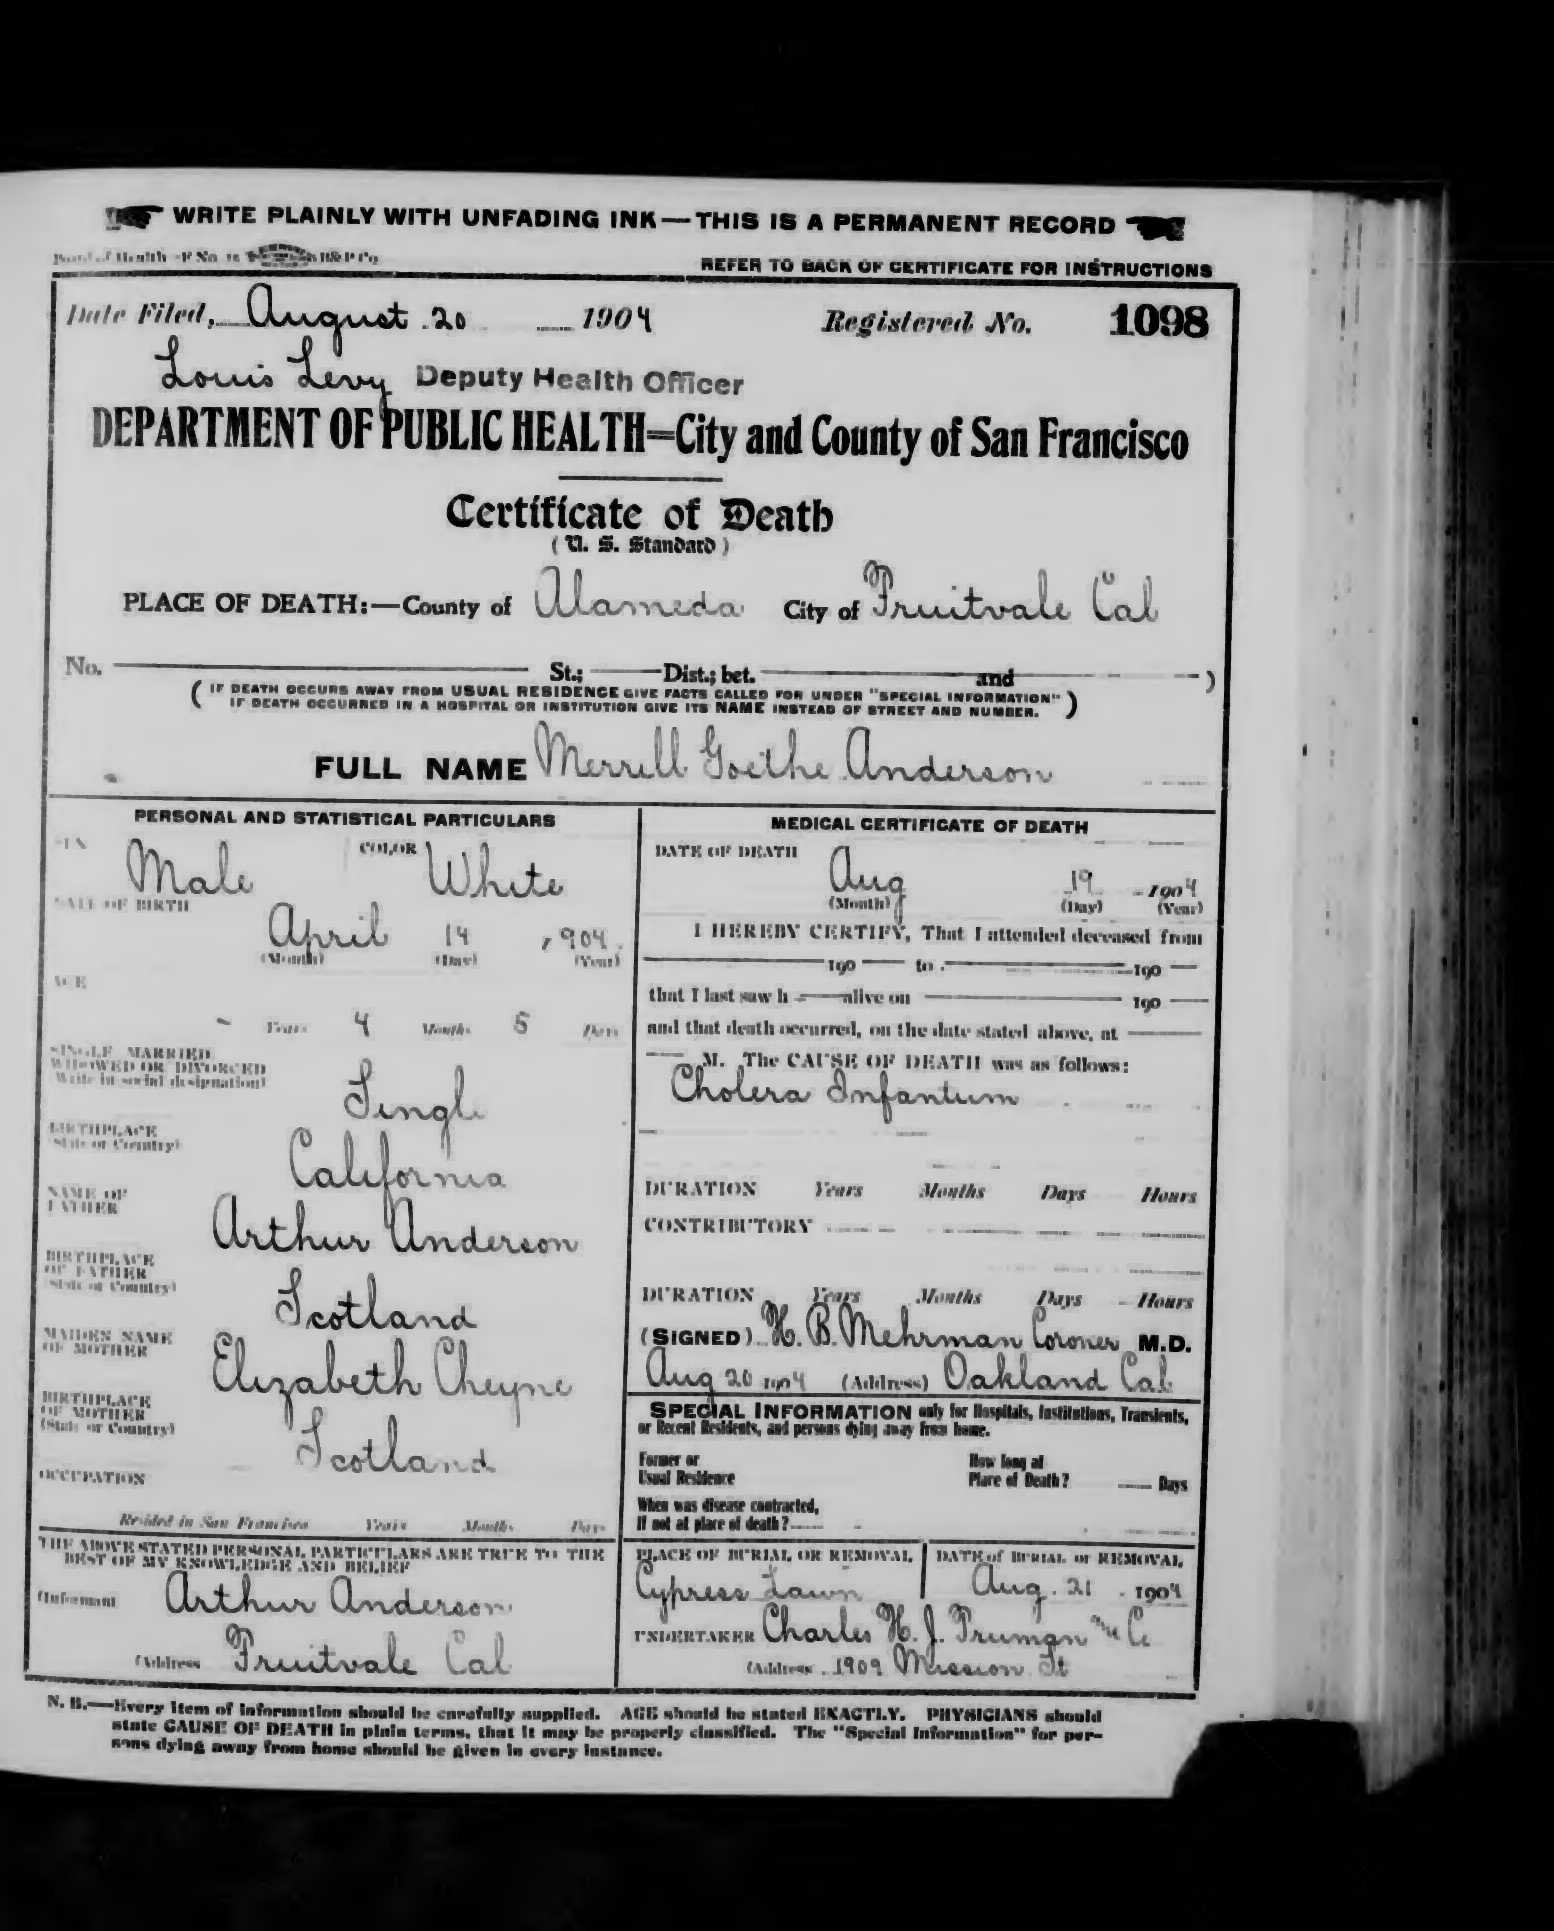 WRITE PLAINLY WITH UNFADING INK—THIS IS A PERMANENT RECORD
Board of Health F No. H&P Co
REFER TO BACK OF CERTIFICATE FOR INSTRUCTIONS
Date Filed, August 20 1904 Registered No. 1098
Louis Levy Deputy Health Officer
DEPARTMENT OF PUBLIC HEALTH=City and County of San Francisco
Certificate of Death
(U. S. Standard)
PLACE OF DEATH:—County of Alameda City of Fruitvale Cal
No. St.; Dist.; bet. and )
(IF DEATH OCCURS AWAY FROM USUAL RESIDENCE GIVE FACTS CALLED FOR UNDER "SPECIAL INFORMATION"
IF DEATH OCCURRED IN A HOSPITAL OR INSTITUTION GIVE ITS NAME INSTEAD OF STREET AND NUMBER.)
FULL NAME Merrill Goethe Anderson
PERSONAL AND STATISTICAL PARTICULARS
SEX Male COLOR White
DATE OF BIRTH
April 14, 904
(Month) (Day) (Year)
AGE
- Years 4 Months 5 Days
SINGLE MARRIED
WIDOWED OR DIVORCED
Write in social designation)
Single
BIRTHPLACE
State or Country)
California
NAME OF
FATHER
Arthur Anderson
BIRTHPLACE
OF FATHER
State or Country)
Scotland
MAIDEN NAME
OF MOTHER
Elizabeth Cheyne
BIRTHPLACE
OF MOTHER
(State or Country)
Scotland
OCCUPATION
Resided in San Francisco Years Months Days
THE ABOVE STATED PERSONAL PARTICULARS ARE TRUE TO THE
BEST OF MY KNOWLEDGE AND BELIEF
(Informant Arthur Anderson
(Address Fruitvale Cal
MEDICAL CERTIFICATE OF DEATH
DATE OF DEATH
Aug 19 1904
(Month) (Day) (Year)
I HEREBY CERTIFY, That I attended deceased from
190 to 190
that I last saw h alive on 190
and that death occurred, on the date stated above, at
M. The CAUSE OF DEATH was as follows:
Cholera Infantum
DURATION Years Months Days Hours
CONTRIBUTORY
DURATION Years Months Days Hours
(SIGNED) H. B. Mehrman Coroner M.D.
Aug 20 1904 (Address) Oakland Cal
SPECIAL INFORMATION only for Hospitals, Institutions, Transients,
or Recent Residents, and persons dying away from home.
Former or
Usual Residence
How long at
Place of Death? Days
When was disease contracted,
If not at place of death?
PLACE OF BURIAL OR REMOVAL
Cypress Lawn
DATE of BURIAL or REMOVAL
Aug. 21 1904
UNDERTAKER Charles H. J. Truman Co
(Address 1909 Mission St
N. B.—Every item of information should be carefully supplied. AGE should be stated EXACTLY. PHYSICIANS should
state CAUSE OF DEATH in plain terms, that it may be properly classified. The "Special Information" for per-
sons dying away from home should be given in every instance.